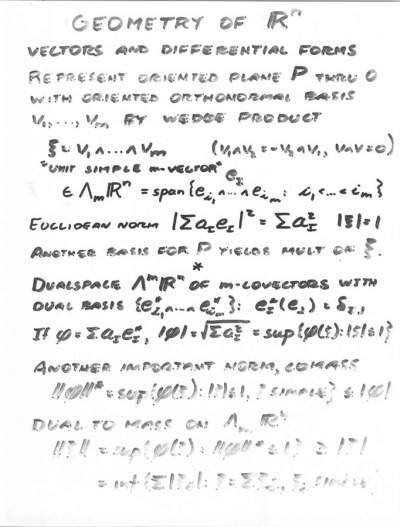 GEOMETRY OF ℝⁿ
VECTORS AND DIFFERENTIAL FORMS
REPRESENT ORIENTED PLANE P THRU 0
WITH ORIENTED ORTHONORMAL BASIS
V₁,..., Vₘ BY WEDGE PRODUCT
ξ = V₁∧...∧Vₘ (V₁∧V₂ = -V₂∧V₁, V∧V=0)
"UNIT SIMPLE m-VECTOR" e_I
∈ Λₘℝⁿ = span{e_i₁∧...∧e_iₘ: i₁<...<iₘ}
EUCLIDEAN NORM |Σa_I e_I|² = Σa_I² |ξ|=1
ANOTHER BASIS FOR P YIELDS MULT OF ξ.
*
DUALSPACE Λᵐℝⁿ OF m-COVECTORS WITH
DUAL BASIS {e*_i₁∧...∧e*_iₘ}: e*_I(e_J) = δ_I,J
If φ = Σa_I e*_I, |φ| = √Σa_I² = sup{φ(ξ): |ξ|≤1}
ANOTHER IMPORTANT NORM, COMASS
||φ||* = sup{φ(ξ): |ξ|≤1, ξ SIMPLE} ≤ |φ|
DUAL TO MASS ON Λₘℝⁿ
||ξ|| = sup{φ(ξ): ||φ||* ≤ 1} ≥ |ξ|
= inf{Σ|ξᵢ|: ξ = Σξᵢ, ξᵢ SIMPLE}